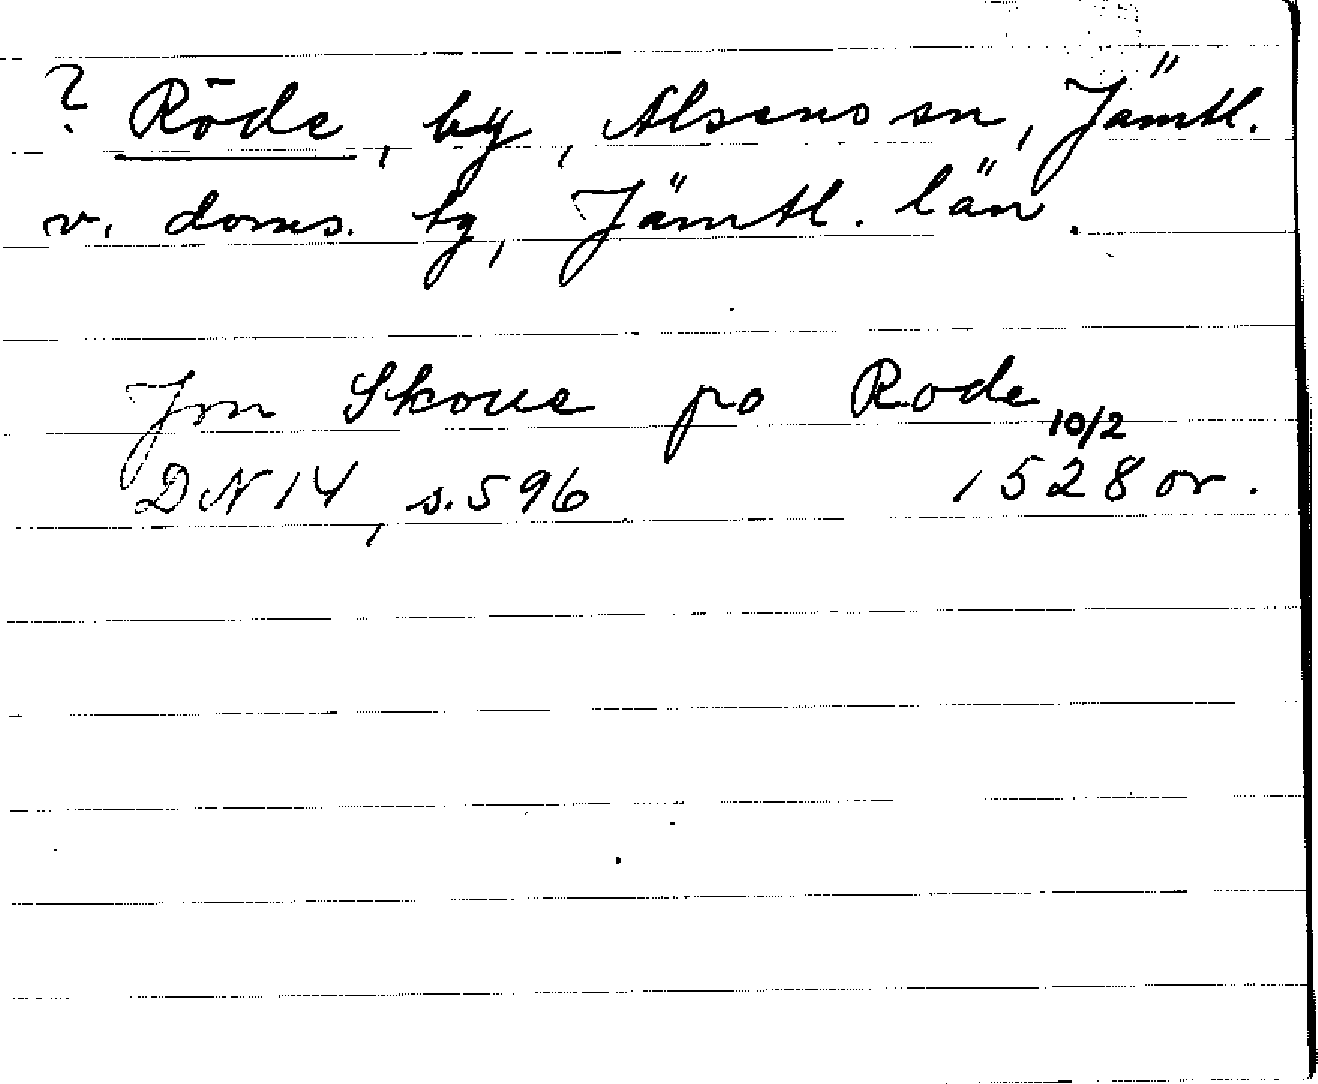 ? Röde, by, Alsens sn, Jämtl.
v. doms. hg, Jämtl. län.
Jon Skoue po Rode
10/2
DN 14, s. 596 1528 or.